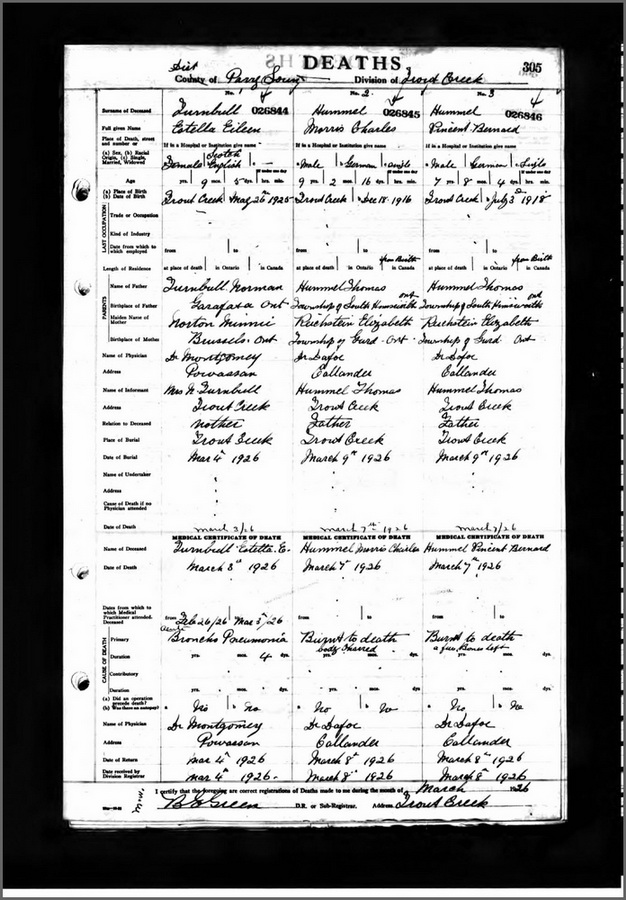 DEATHS
305
Dist
County of Parry Sound Division of Trout Creek
No. 1 No. 2 No. 3
Surname of Deceased Turnbull 026844 Hummel 026845 Hummel 026846
Full given Name Estella Eileen Morris Charles Vincent Bernard
Place of Death, street and number or If in a Hospital or Institution give name If in a Hospital or Institution give name If in a Hospital or Institution give name
(a) Sex, (b) Racial Origin, (c) Single, Married, Widowed Female Scotch English Male German Single Male German Single
Age yrs. 9 mos. 5 dys. hrs. min. 9 yrs. 2 mos. 16 dys. hrs. min. 7 yrs. 8 mos. 4 dys. hrs. min.
(a) Place of Birth (b) Date of Birth Trout Creek May 26th 1925 Trout Creek Dec 18 1916 Trout Creek July 3 1918
LAST OCCUPATION
Trade or Occupation
Kind of Industry
Date from which to which employed from to from to from to
from Birth from Birth
Length of Residence at place of death in Ontario in Canada at place of death in Ontario in Canada at place of death in Ontario in Canada
PARENTS
Name of Father Turnbull Norman Hummel Thomas Hummel Thomas
Birthplace of Father Garafaxa Ont Township of South Himsworth ont Township of South Himsworth ont
Maiden Name of Mother Norton Minnie Reichstein Elizabeth Reichstein Elizabeth
Birthplace of Mother Brussels. Ont Township of Gurd - Ont - Township of Gurd Ont
Name of Physician Dr Montgomery Dr Dafoe Dr Dafoe
Address Powassan Callander Callander
Name of Informant Mrs N Turnbull Hummel Thomas Hummel Thomas
Address Trout Creek Trout Creek Trout Creek
Relation to Deceased Mother Father Father
Place of Burial Trout Creek Trout Creek Trout Creek
Date of Burial Mar 4th 1926 March 9th 1926 March 9th 1926
Name of Undertaker
Address
Cause of Death if no Physician attended
Date of Death march 3/26 march 7th 1926 march 7/26
MEDICAL CERTIFICATE OF DEATH MEDICAL CERTIFICATE OF DEATH MEDICAL CERTIFICATE OF DEATH
Name of Deceased Turnbull Estella E. Hummel Morris Charles Hummel Vincent Bernard
Date of Death March 3rd 1926 March 7th 1926 March 7th 1926
Dates from which to which Medical Practitioner attended Deceased from Feb 26/26 Mar 3rd/26
CAUSE OF DEATH
Primary Acute Broncho Pneumonia Burnt to death Burnt to death
body charred a few Bones left
Duration yrs. mos. 4 dys. yrs. mos. dys. yrs. mos. dys.
Contributory
Duration yrs. mos. dys. yrs. mos. dys. yrs. mos. dys.
(a) Did an operation precede death? (b) Was there an autopsy? No No No No No No
Name of Physician Dr Montgomery Dr Dafoe Dr Dafoe
Address Powassan Callander Callander
Date of Return Mar 4th 1926 March 8th 1926 March 8th 1926
Date received by Division Registrar Mar 4th 1926 - March 8th 1926 March 8th 1926
I certify that the foregoing are correct registrations of Deaths made to me during the month of March 1926
D.R. or Sub-Registrar. Address Trout Creek